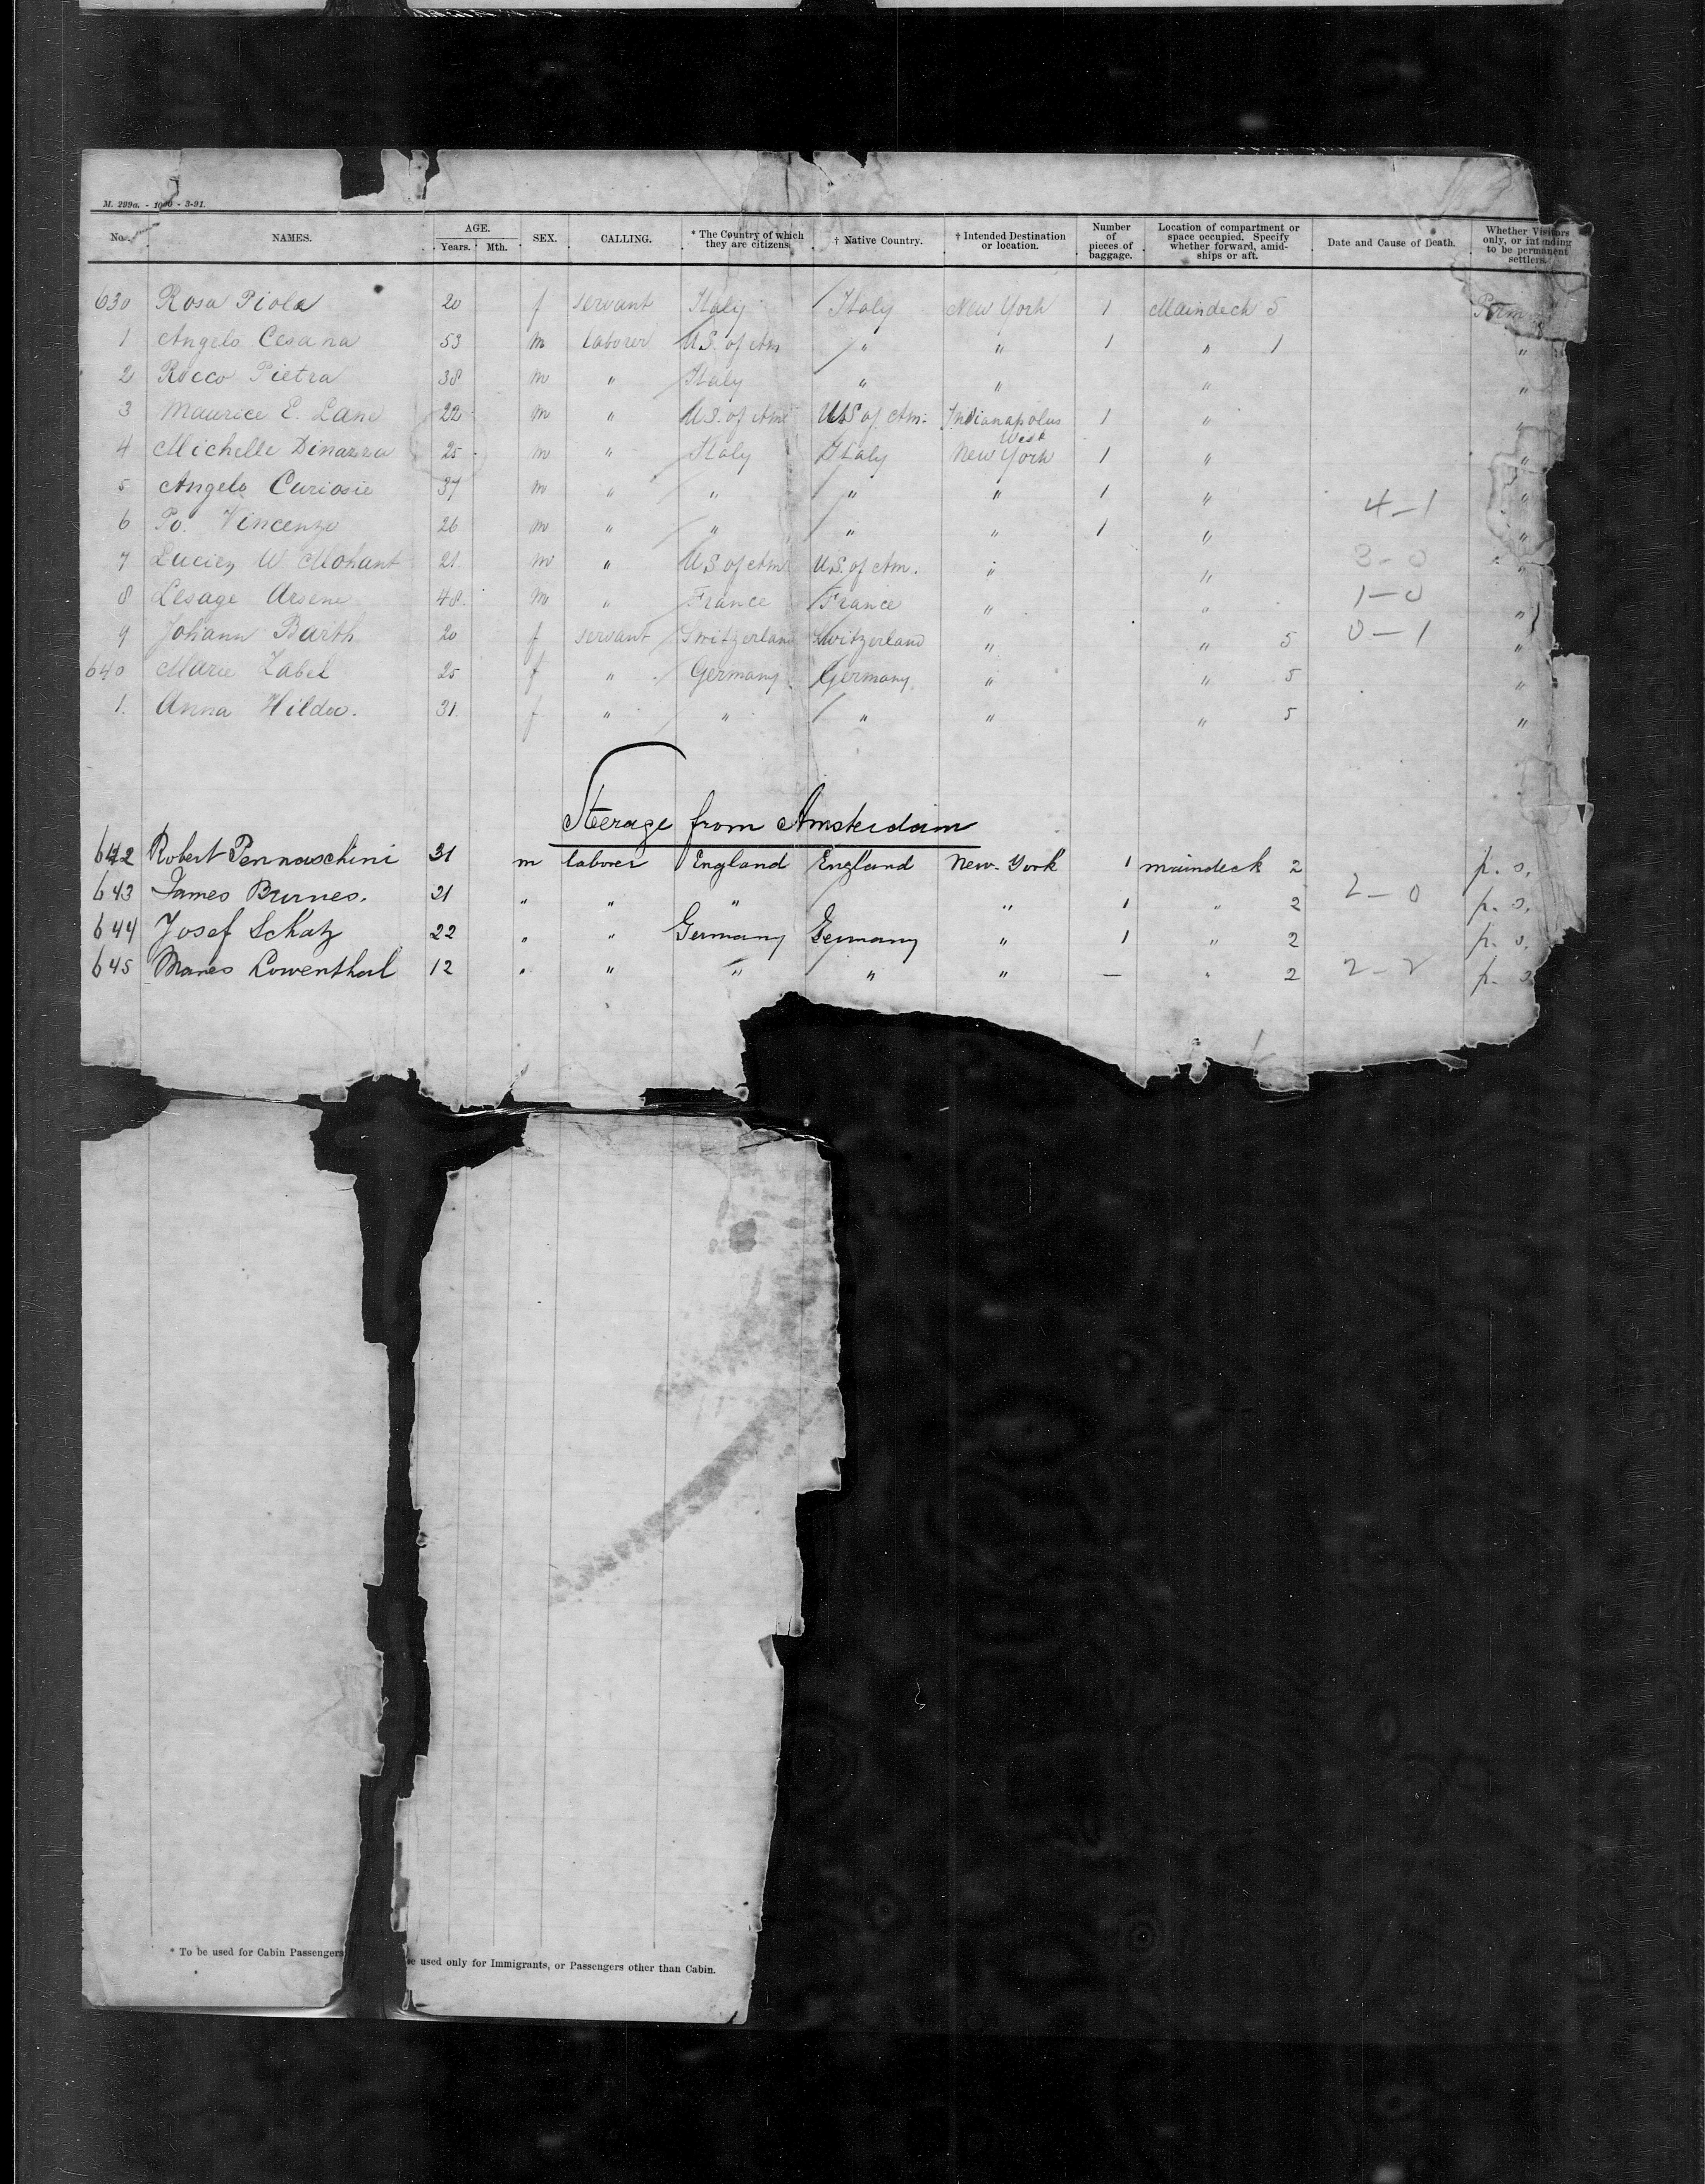 M. 299a. - 1000 - 3-91.
No. NAMES. AGE. Years. Mth. SEX. CALLING. * The Country of which they are citizens. † Native Country. † Intended Destination or location. Number of pieces of baggage. Location of compartment or space occupied. Specify whether forward, amidships or aft. Date and Cause of Death. Whether Visitors only, or intending to be permanent settlers.
630 Rosa Piola 20 f servant Italy Italy New York 1 Maindeck 5 Perm
1 Angelo Cesana 53 m laborer U.S. of Am " " 1 " 1 "
2 Rocco Pietra 38 m " Italy " " " "
3 Maurice E. Lane 22 m " U.S. of Am U.S of Am. Indianapolus 1 " "
4 Michelle Dinazza 25 m " Italy Italy New York 1 " "
5 Angelo Curiosie 37 m " " " " 1 " 4-1 "
6 Po. Vincenzo 26 m " " " " 1 " "
7 Lucien W Mohant 21 m " U.S of Am U.S. of Am. " " 3-0 "
8 Lesage Arsene 48 m " France France " " 1-0 "
9 Johann Barth 20 f servant Switzerland Switzerland " " 5 0-1 "
640 Marie Zabel 25 f " Germany Germany " " 5 "
1. Anna Hilda. 31 f " " " " " 5 "
Steerage from Amsterdam
642 Robert Pennaschini 31 m laborer England England New-York 1 maindeck 2 p. s.
643 James Burnes. 21 " " " " 1 " 2 2-0 p. s.
644 Josef Schatz 22 " " Germany Germany " 1 " 2 p. s.
645 Manes Lowenthal 12 " " " " " — " 2 2-2 p. s
* To be used for Cabin Passengers
be used only for Immigrants, or Passengers other than Cabin.